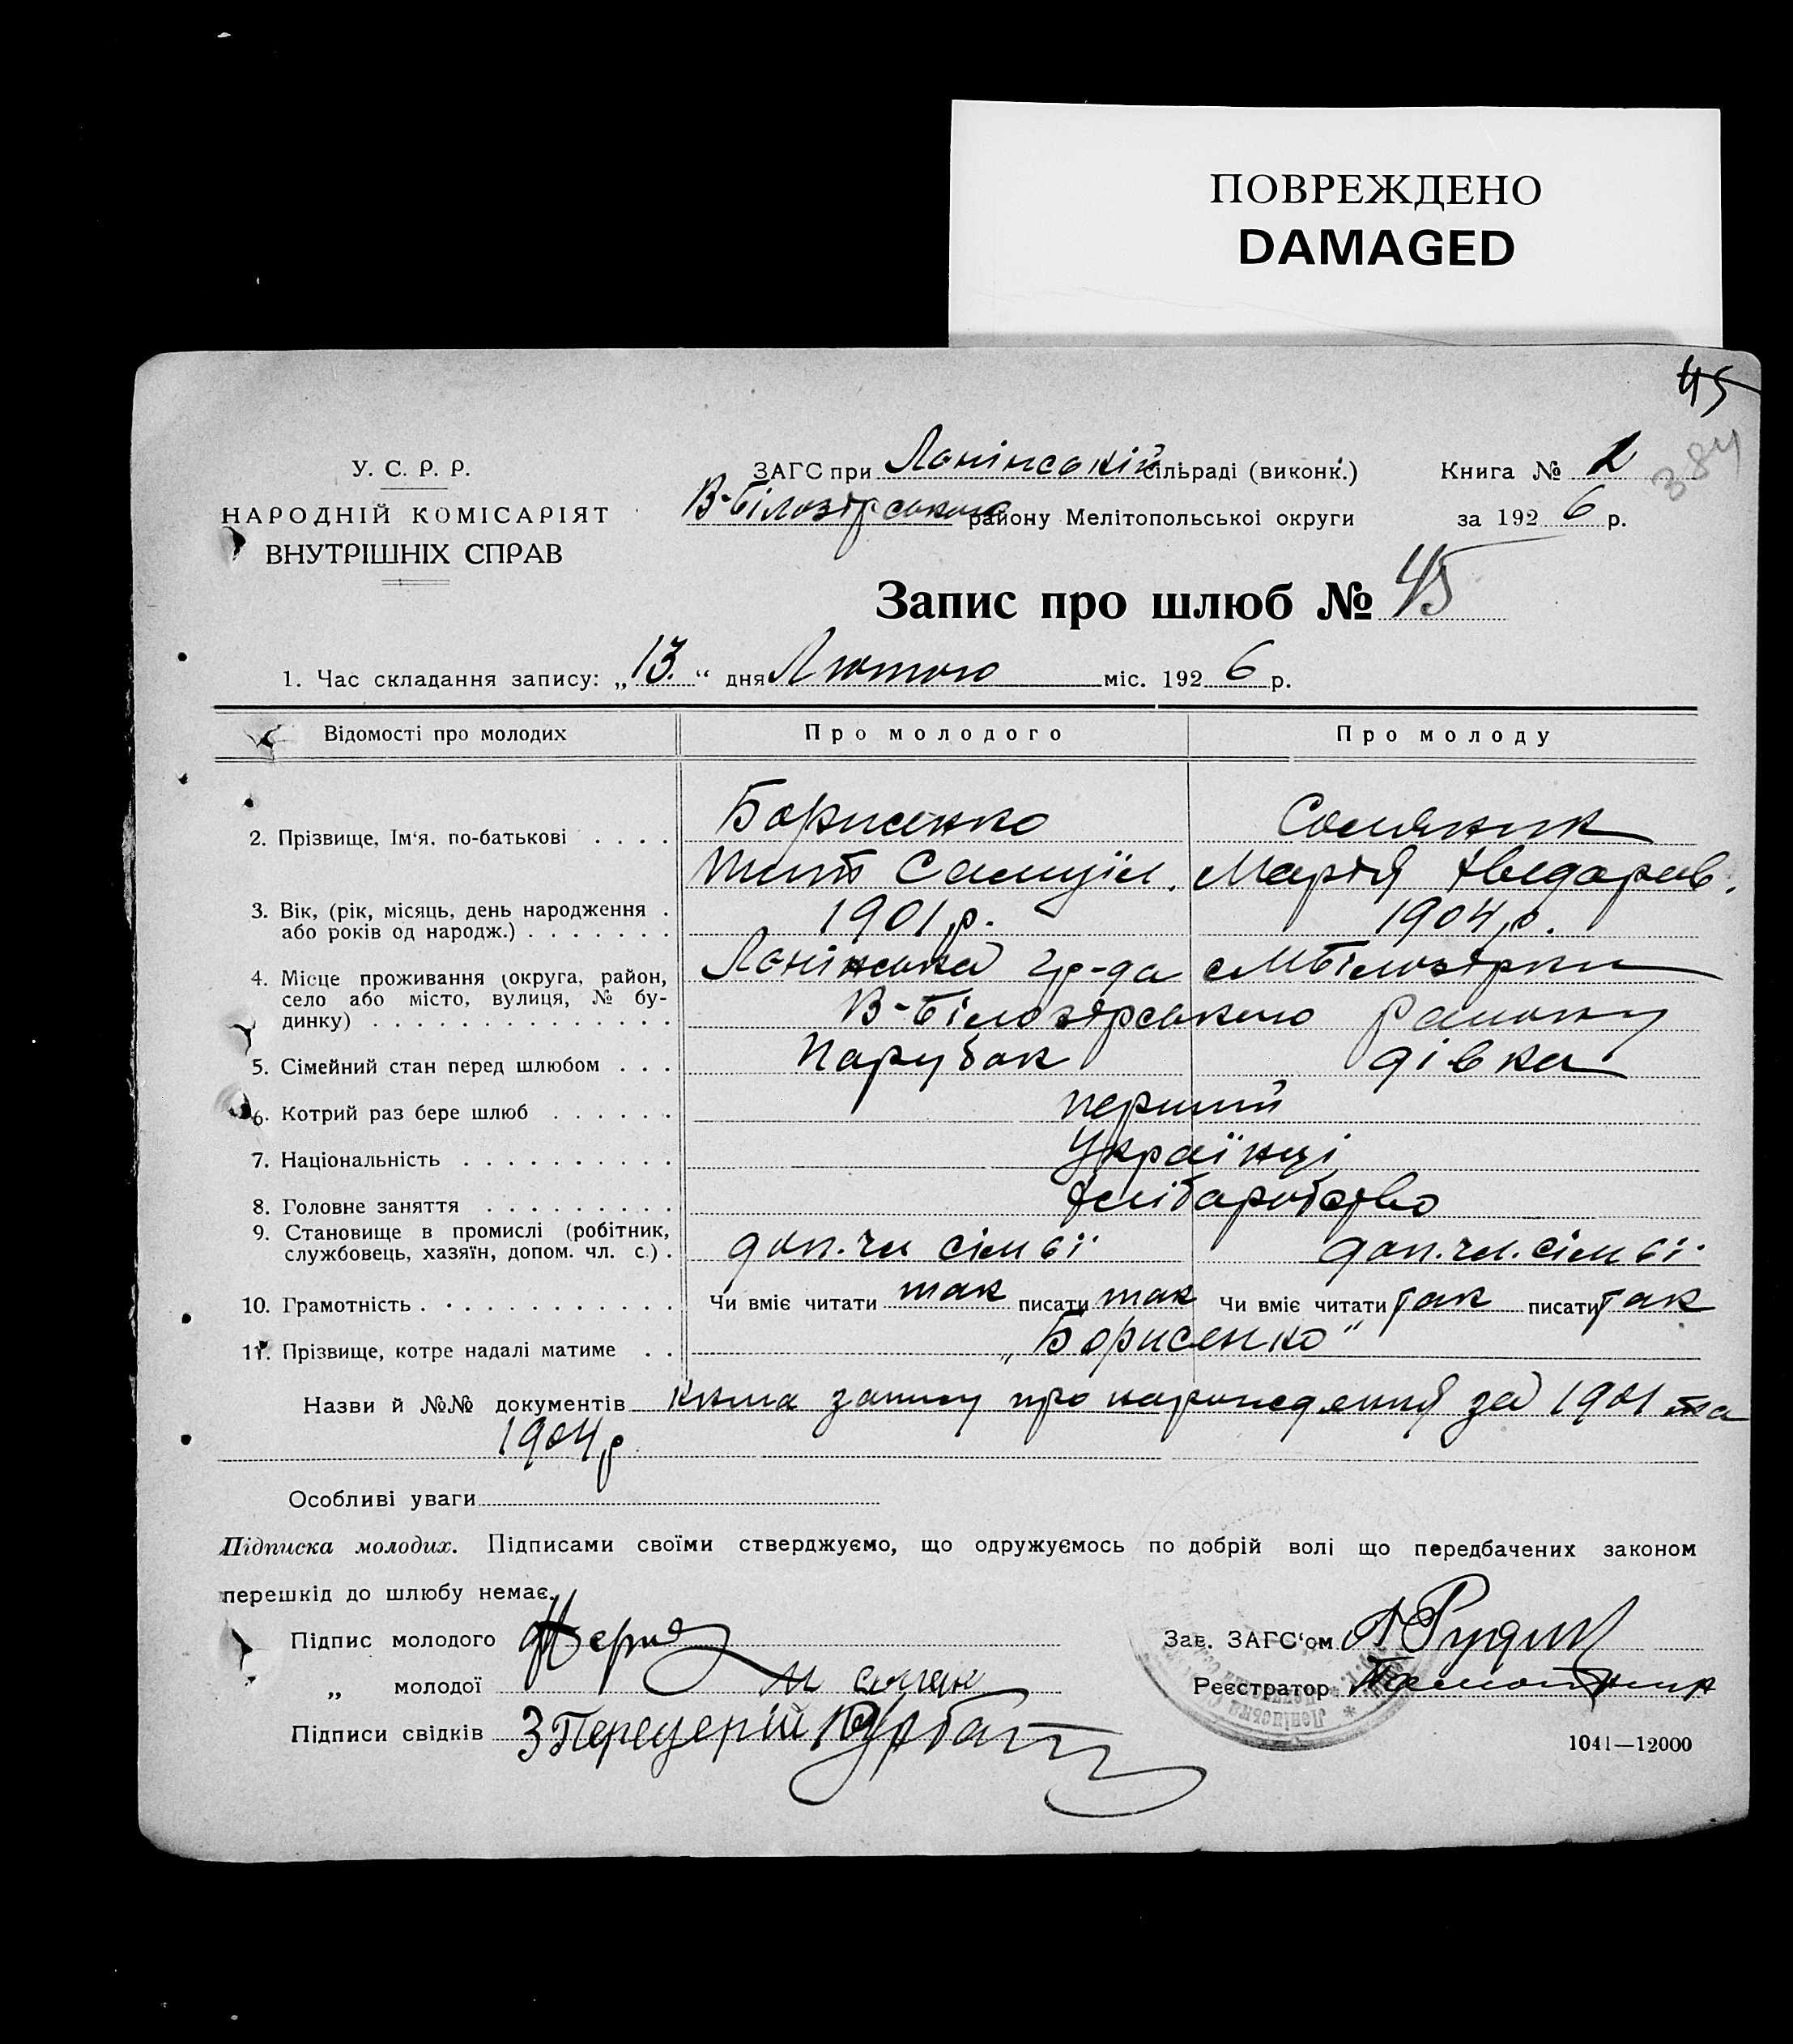 ПОВРЕЖДЕНО
DAMAGED
45
384
У. С. Р. Р.
НАРОДНІЙ КОМІСАРІЯТ
ВНУТРІШНІХ СПРАВ
ЗАГС при Ленінській сільраді (виконк.)
В-Білозірського району Мелітопольської округи
Книга № 1
за 1926 р.
Запис про шлюб № 45
1. Час складання запису: „13.“ дня Лютого міс. 1926 р.
Відомості про молодих Про молодого Про молоду
2. Прізвище, Ім‘я, по-батькові . . . . Борисенко Соляник
Тит Самуїл. Марія Федоров.
3. Вік, (рік, місяць, день народження . 1901 р. 1904 р.
або років од народж.) . . . . . . .
4. Місце проживання (округа, район, Ленінська гр-да с МБілозірки
село або місто, вулиця, № бу-
динку) . . . . . . . . . . . . . . В-Білозірського району
5. Сімейний стан перед шлюбом . . . Парубок дівка
6. Котрий раз бере шлюб . . . . . . перший
7. Національність . . . . . . . . . . Українці
8. Головне заняття . . . . . . . . . Хліборобство
9. Становище в промислі (робітник,
службовець, хазяїн, допом. чл. с.) . доп. чл сімʼї доп. чл. сімʼї.
10. Грамотність . . . . . . . . . . . . Чи вміє читати так писати так Чи вміє читати так писати так
11. Прізвище, котре надалі матиме . . „Борисенко“
Назви й №№ документів книга запису про народження за 1901 та
1904 р.
Особливі уваги
Підписка молодих. Підписами своїми стверджуємо, що одружуємось по добрій волі що передбачених законом
перешкід до шлюбу немає.
Підпис молодого
„ молодої М
Підписи свідків З
Зав. ЗАГС‘ом А Рудик
Реєстратор
1041—12000